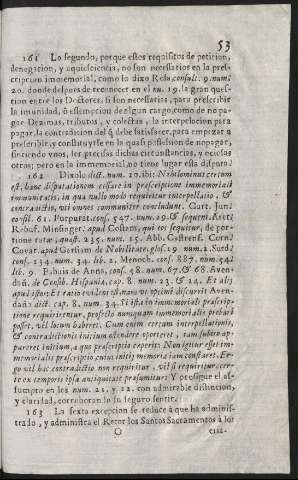 53
161 Lo segundo, porque estos requisitos de peticion,
denegacion, y aquiesciencia, no son necessarios en la pres-
cripcion immemorial, como lo dixo Rela consult. 9. num.
20. donde despues de reconocer en el nu. 19. la gran ques-
tion entre los Doctores, si son necessarios, para prescribir
la imunidad, ò essempcion de algun cargo, como de no pa-
gar Dezimas, tributos, y colectas, la interpelacion para
pagar, la contradicion del q̃ debe satisfacer, para empezar a
prescribir, y constituyrse en la quasi possession de no pagar,
sintiendo vnos, ser precisas dichas circunstancias, y escusas
otras; pero en la immemorial, no tiene lugar esta disputa.
162 Dixolo dict. num. 20. ibi: Nihilominus certum
est, hanc disputationem cessare in prescriptione immemoriali
immunitatis, in qua nullo modo requiritur interpellatio, &
contradictio, uti omnes communiter concludunt. Gart.
consil. 61. Purpurat. cons. 547. num. 29. & sequent.
Rebuf. Minsinger. apud Costam, qui eos sequitur, de por-
tione ratæ, quæst. 235. num. 15. Abb. Gastrens. Corn.
Covar. apud Garsiam de Nobilitate, glos. 29. num. 2. Surd.
cons. 234. num. 34. lib. 2. Menoch. cons. 887. num. 54.
lib. 9. Fabius de Anna, cons. 58. num. 67. & 68. Aven-
dañ. de Censib. Hispania, cap. 8. num. 23. & 24. Et alij
apud istos: Et ratio evidens est, magis vt optime discurrit Aven-
dañ dict. cap. 8. num. 34. Si ista in immemoriali prascrip-
tione requirirentur, profecto nunquam immemorialis probari
posset, vel locum haberet. Cum enim certum interpellationis,
& contradictionis initium ostendere oporteret, iam subito ap-
pareret initium, a quo prascriptio coeperit: Non igitur esset im-
memorialis prascriptio cuius initij memoria iam constaret. Er-
go vel hac contradictio non requiritur, vel si requiritur, cer-
te ex temporis ipsa antiquitate prasumitur: Y prosigue el as-
sumpto en los num. 21. y 22. con admirable distincion,
y claridad, corroborando su seguro sentir.
163 La sexta excepcion se reduce à que ha adminis-
trado, y administra el Retor los Santos Sacramentos à los
O